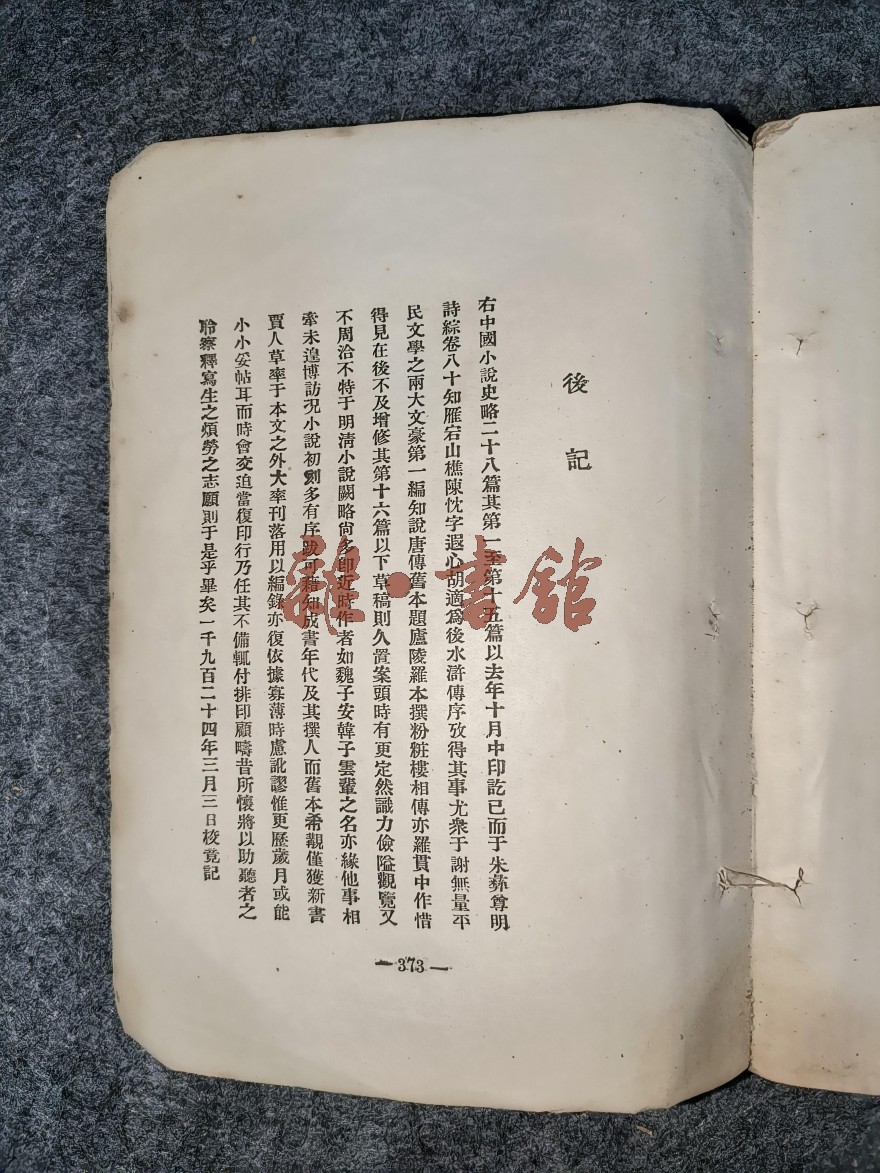 後記
右中國小說史略二十八篇其第一至第十五篇以去年十月中印訖已而于朱彝尊明
詩綜卷八十知雁宕山樵陳忱字遐心胡適爲後水滸傳序攷得其事尤衆于謝無量平
民文學之兩大文豪第一編知說唐傳舊本題廬陵羅本撰粉粧樓相傳亦羅貫中作惜
得見在後不及增修其第十六篇以下草稿則久置案頭時有更定然識力儉隘觀覽又
不周洽不特于明清小說闕略尙多即近時作者如魏子安韓子雲輩之名亦緣他事相
牽未遑博訪況小說初刻多有序跋可藉知成書年代及其撰人而舊本希覯僅獲新書
賈人草率于本文之外大率刊落用以編錄亦復依據寡薄時慮訛謬惟更歷歲月或能
小小妥帖耳而時會交迫當復印行乃任其不備輒付排印顧疇昔所懷將以助聽者之
聆察釋寫生之煩勞之志願則于是乎畢矣一千九百二十四年三月三日校竟記
— 373 —
雜·書館